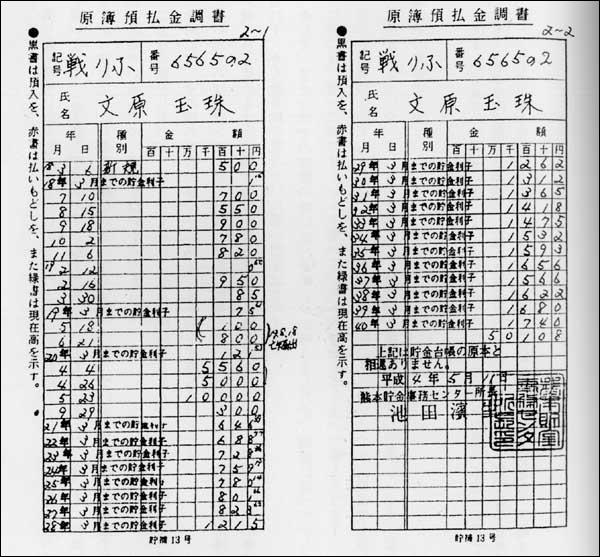 原簿預払金調書
2~1
記号 戦りふ 番号 656502
氏名 文原玉珠
年月日 種別 金額
百十万千百十円
18 3 6 新規 500
18年3月までの貯金利子
7 10 700
8 15 550
9 18 900
10 2 780
11 6 820
19 2 12
2 16 950
3 30 85
19年3月までの貯金利子
5 18 100
6 21 800
20年3月までの貯金利子
4 4 5560
4 26 5000
5 23 10000
9 29 300
21年3月までの貯金利子
22年3月までの貯金利子
23年3月までの貯金利子
24年3月までの貯金利子
25年3月までの貯金利子
26年3月までの貯金利子
27年3月までの貯金利子
28年3月までの貯金利子 1215
貯補13号
●黒書は預入を、赤書は払いもどしを、また緑書は現在高を示す。
原簿預払金調書
2~2
記号 戦りふ 番号 656502
氏名 文原玉珠
年月日 種別 金額
百十万千百十円
29年3月までの貯金利子 1262
30年3月までの貯金利子 1312
31年3月までの貯金利子 1365
32年3月までの貯金利子 1418
33年3月までの貯金利子 1475
34年3月までの貯金利子 1532
35年3月までの貯金利子 1593
36年3月までの貯金利子 1656
37年3月までの貯金利子 1566
38年3月までの貯金利子 1622
39年3月までの貯金利子 1680
40年3月までの貯金利子 1740
50108
上記は貯金台帳の原本と
相違ありません。
平成4年5月11日
熊本貯金事務センター所長
池田
貯補13号
●黒書は預入を、赤書は払いもどしを、また緑書は現在高を示す。